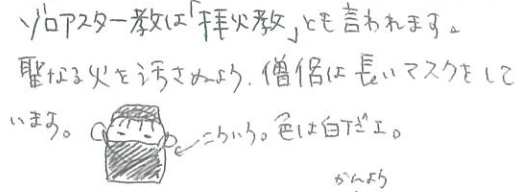 ゾロアスター教は「拝火教」とも言われます。
聖なる火を汚さぬよう、僧侶は長いマスクをして
います。
こういう。色は白だよ。
かんより